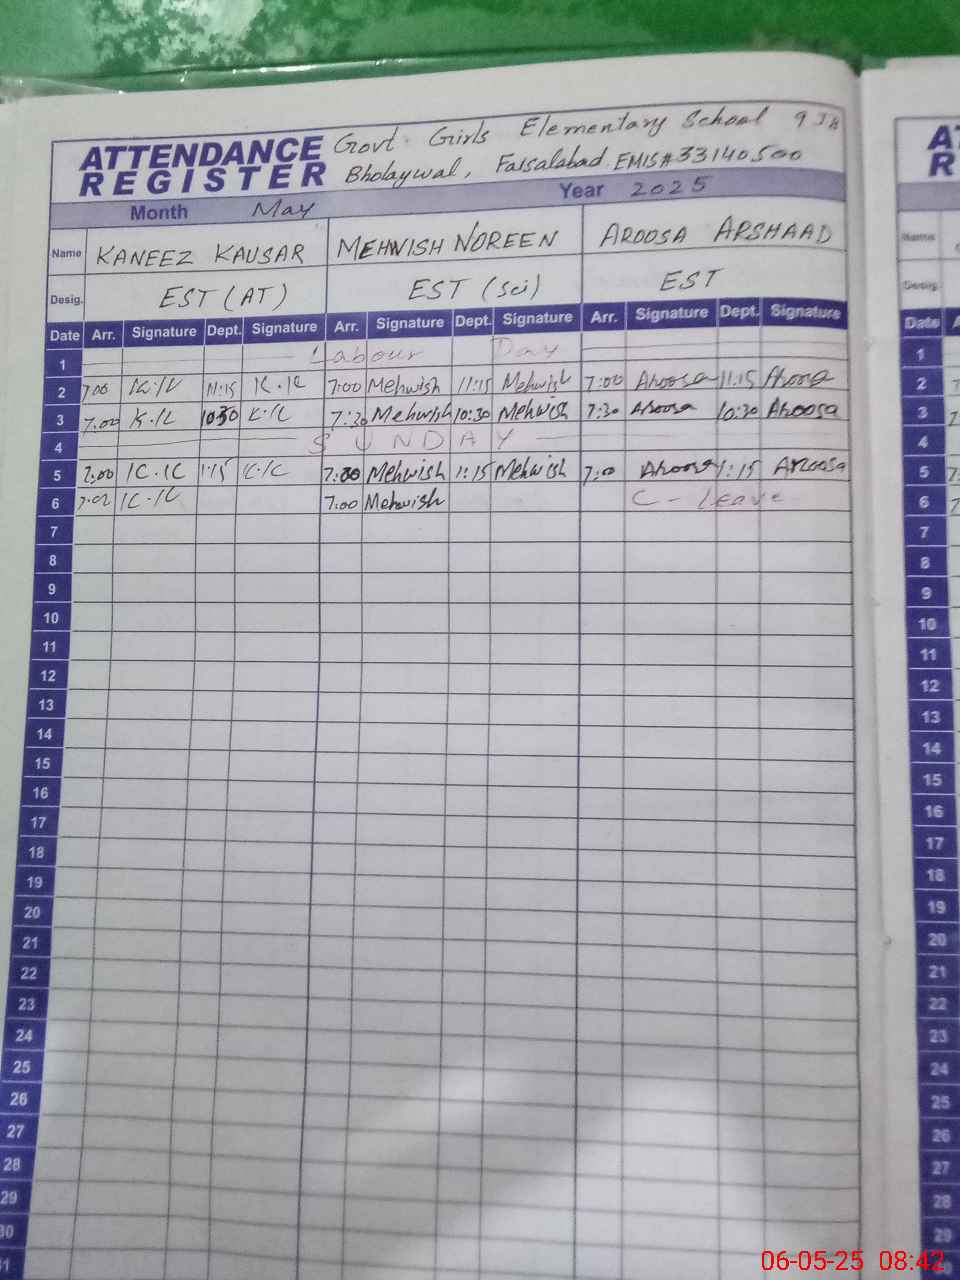 ATTENDANCE REGISTER
Govt. Girls Elementary School 9 JB
Bholaywal, Faisalabad. EMIS#33140500
Month May Year 2025
Name KANEEZ KAUSAR MEHWISH NOREEN AROOSA ARSHAAD
Desig. EST (AT) EST (Sci) EST
Date Arr. Signature Dept. Signature Arr. Signature Dept. Signature Arr. Signature Dept. Signature
1 Labour Day
2 7:00 K.K 11:15 K.K 7:00 Mehwish 11:15 Mehwish 7:00 Aroosa 11:15 Aroosa
3 7:00 K.K 10:30 K.K 7:30 Mehwish 10:30 Mehwish 7:30 Aroosa 10:30 Aroosa
4 SUNDAY
5 7:00 K.K 1:15 K.K 7:00 Mehwish 1:15 Mehwish 7:00 Aroosa 1:15 Aroosa
6 7:00 K.K 7:00 Mehwish C-Leave
7
8
9
10
11
12
13
14
15
16
17
18
19
20
21
22
23
24
25
26
27
28
29
30
31
Name
Desig.
Date
1
2
3
4
5
6
7
8
9
10
11
12
13
14
15
16
17
18
19
20
21
22
23
24
25
26
27
28
29
06-05-25 08:42